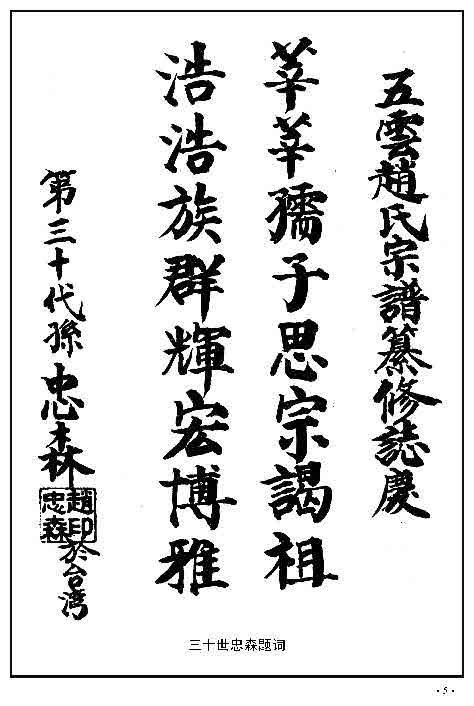 五雲趙氏宗譜纂修誌慶
莘莘孺子思宗謁祖
浩浩族群輝宏博雅
第三十代孫忠森
趙印忠森
於台湾
三十世忠森题词
· 5 ·